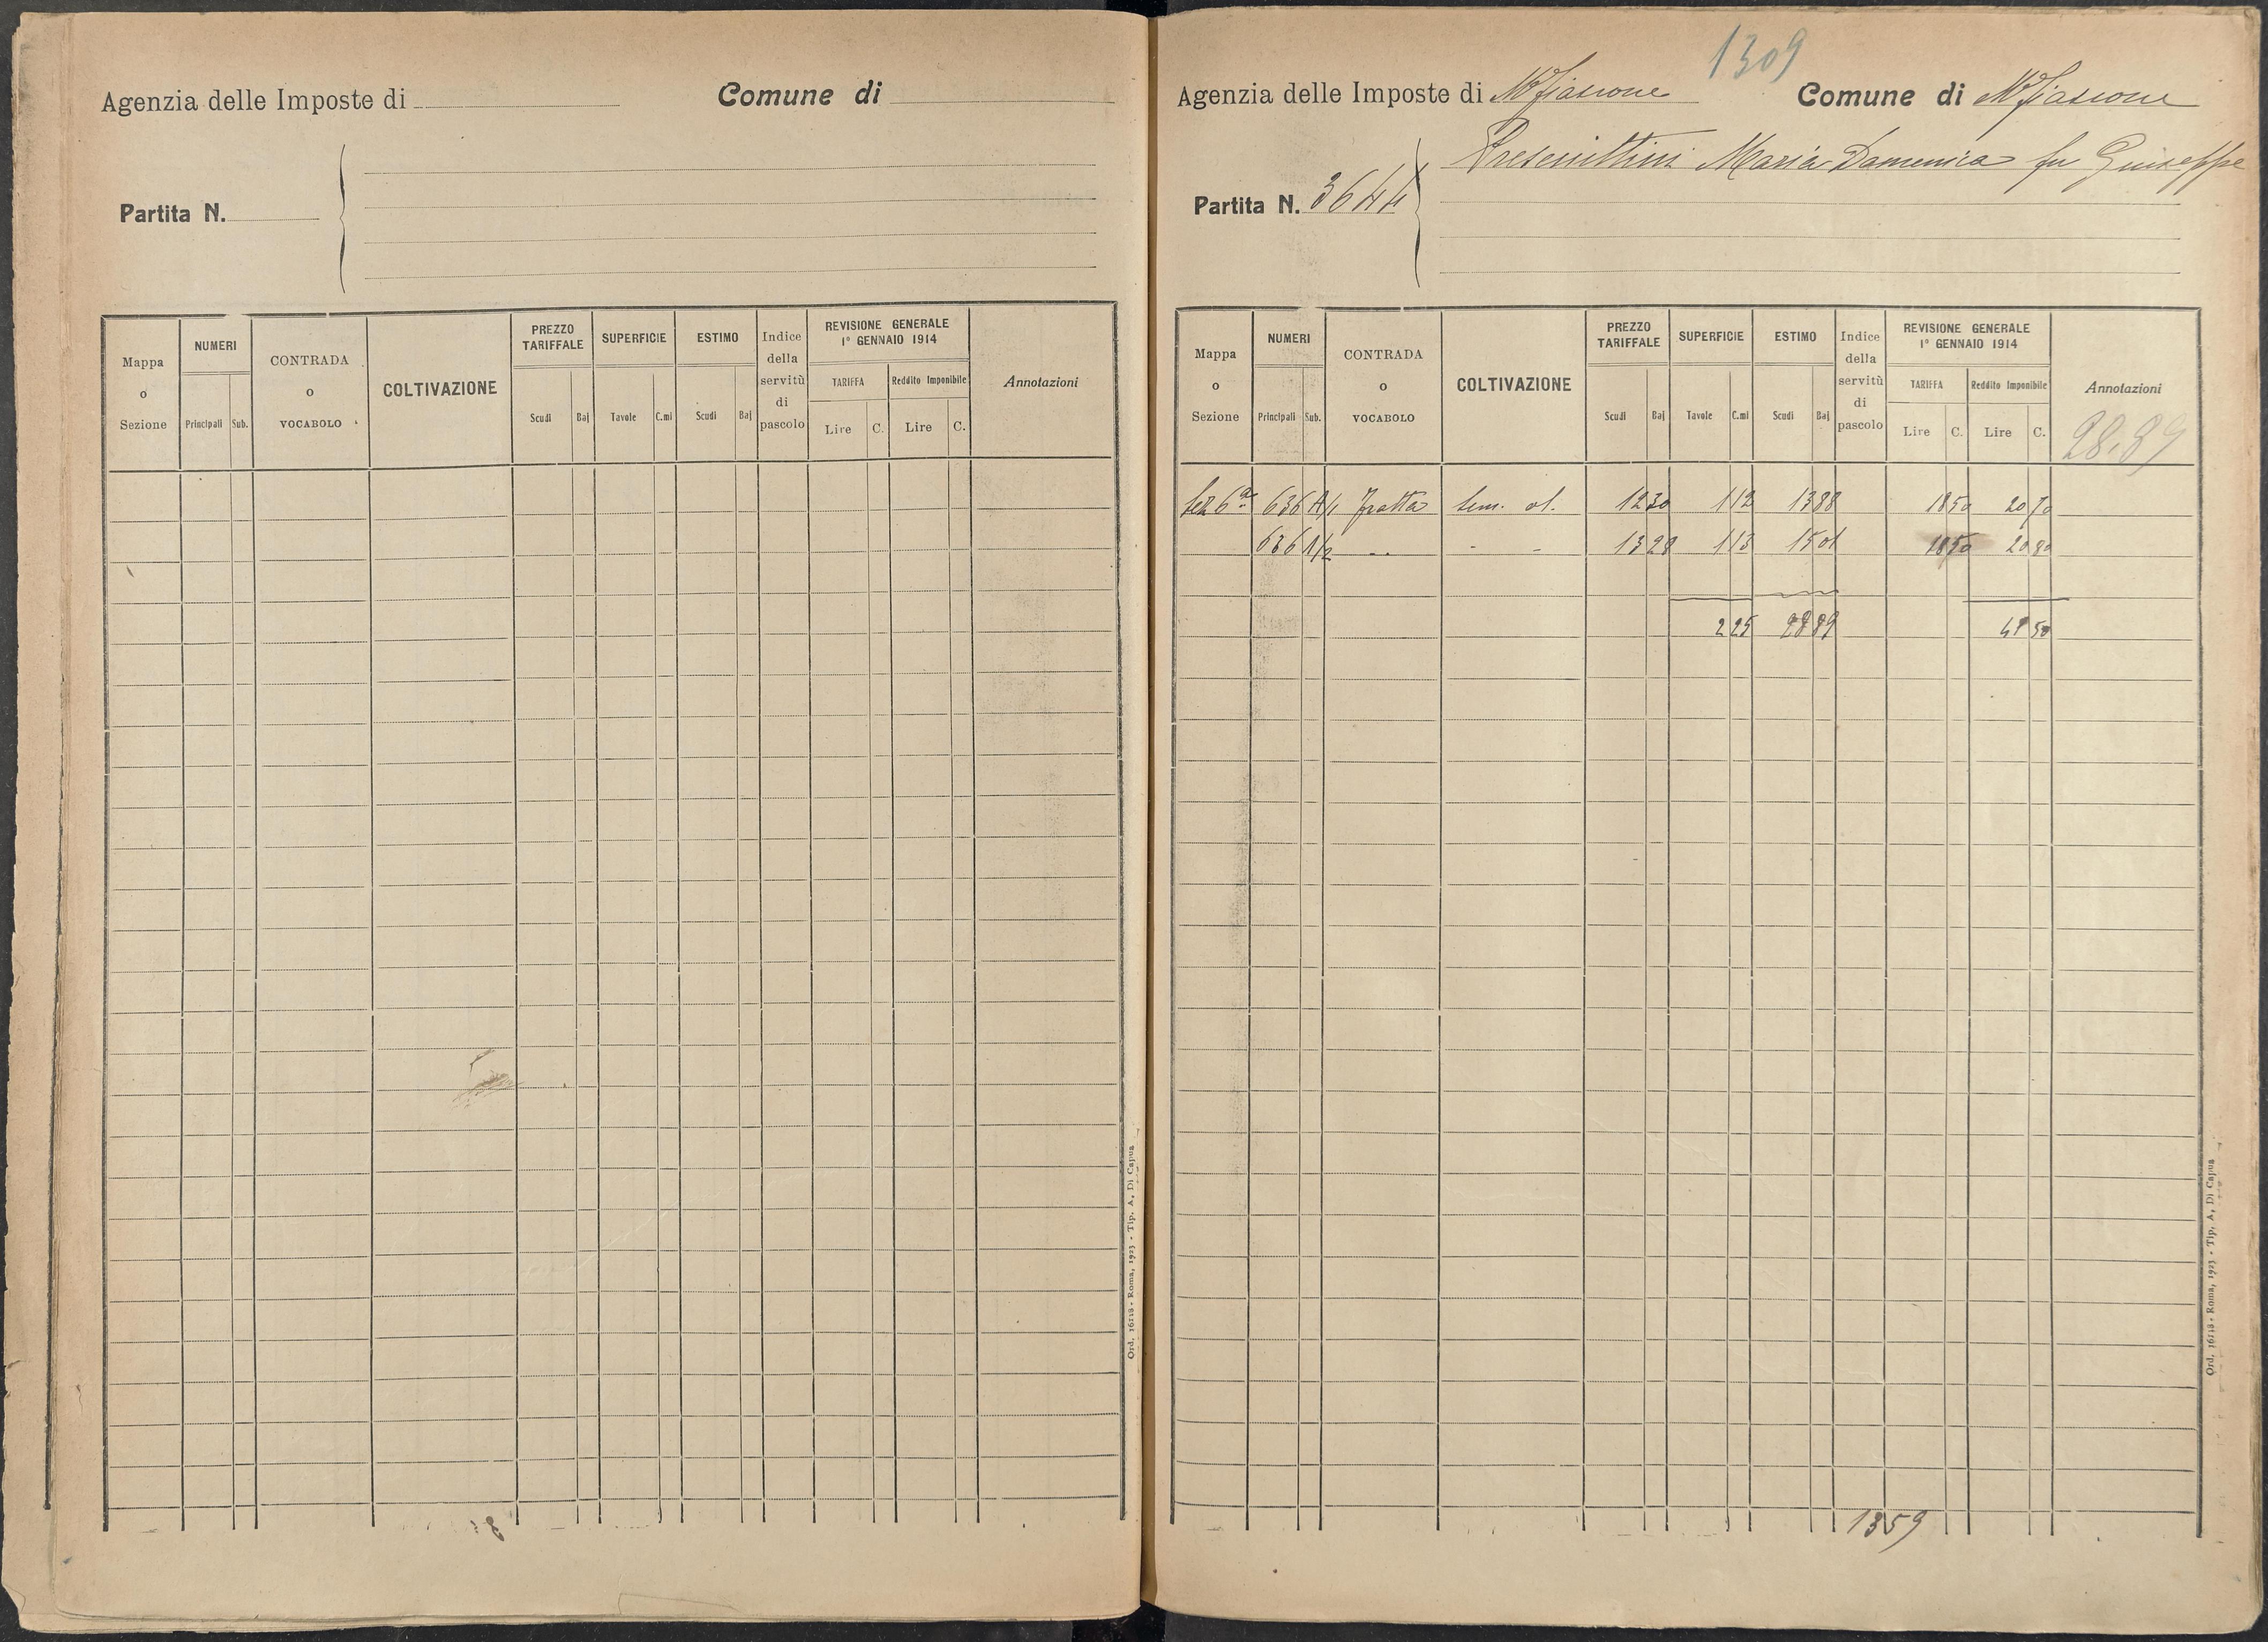 Agenzia delle Imposte di
Comune di
Partita N.
Mappa o Sezione
NUMERI
Principali Sub.
CONTRADA o VOCABOLO
COLTIVAZIONE
PREZZO TARIFFALE
Scudi Baj
SUPERFICIE
Tavole C.mi
ESTIMO
Scudi Baj
Indice della servitù di pascolo
REVISIONE GENERALE
1º GENNAIO 1914
TARIFFA
Lire C.
Reddito Imponibile
Lire C.
Annotazioni
Ord. 16118 - Roma, 1923 - Tip. A, Di Capua
1309
Agenzia delle Imposte di Mfiascone
Comune di Mfiascone
Maria Domenica fu Giuseppe
Partita N. 3644
Mappa o Sezione
NUMERI
Principali Sub.
CONTRADA o VOCABOLO
COLTIVAZIONE
PREZZO TARIFFALE
Scudi Baj
SUPERFICIE
Tavole C.mi
ESTIMO
Scudi Baj
Indice della servitù di pascolo
REVISIONE GENERALE
1º GENNAIO 1914
TARIFFA
Lire C.
Reddito Imponibile
Lire C.
Annotazioni
28.89
Sez 6ª 636 A/1 Fratta Sem. ol. 12 30 1 12 13 88 18 50 20 70
636 A/2 " " - - 13 28 1 13 15 01 18 50 20 80
2 25 28 89 41 50
1359
Ord. 16118 - Roma, 1923 - Tip. A, Di Capua